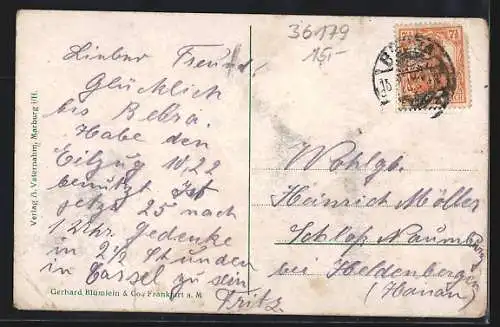 36179
15,-
Lieber Freund,
Glücklich
bis Bebra.
Habe den
Eilzug 10,22
benutzt Ist
jetzt 25 nach
1 Uhr. Gedenke
in 2½ Stunden
in Cassel zu sein
Fritz.
7½
BEBRA
Wohlgb.
Heinrich Möller
Schloß Naumburg
bei Heldenbergen
(Hanau)
Verlag A. Vaternahm, Marburg i/H.
Gerhard Blümlein & Co., Frankfurt a. M